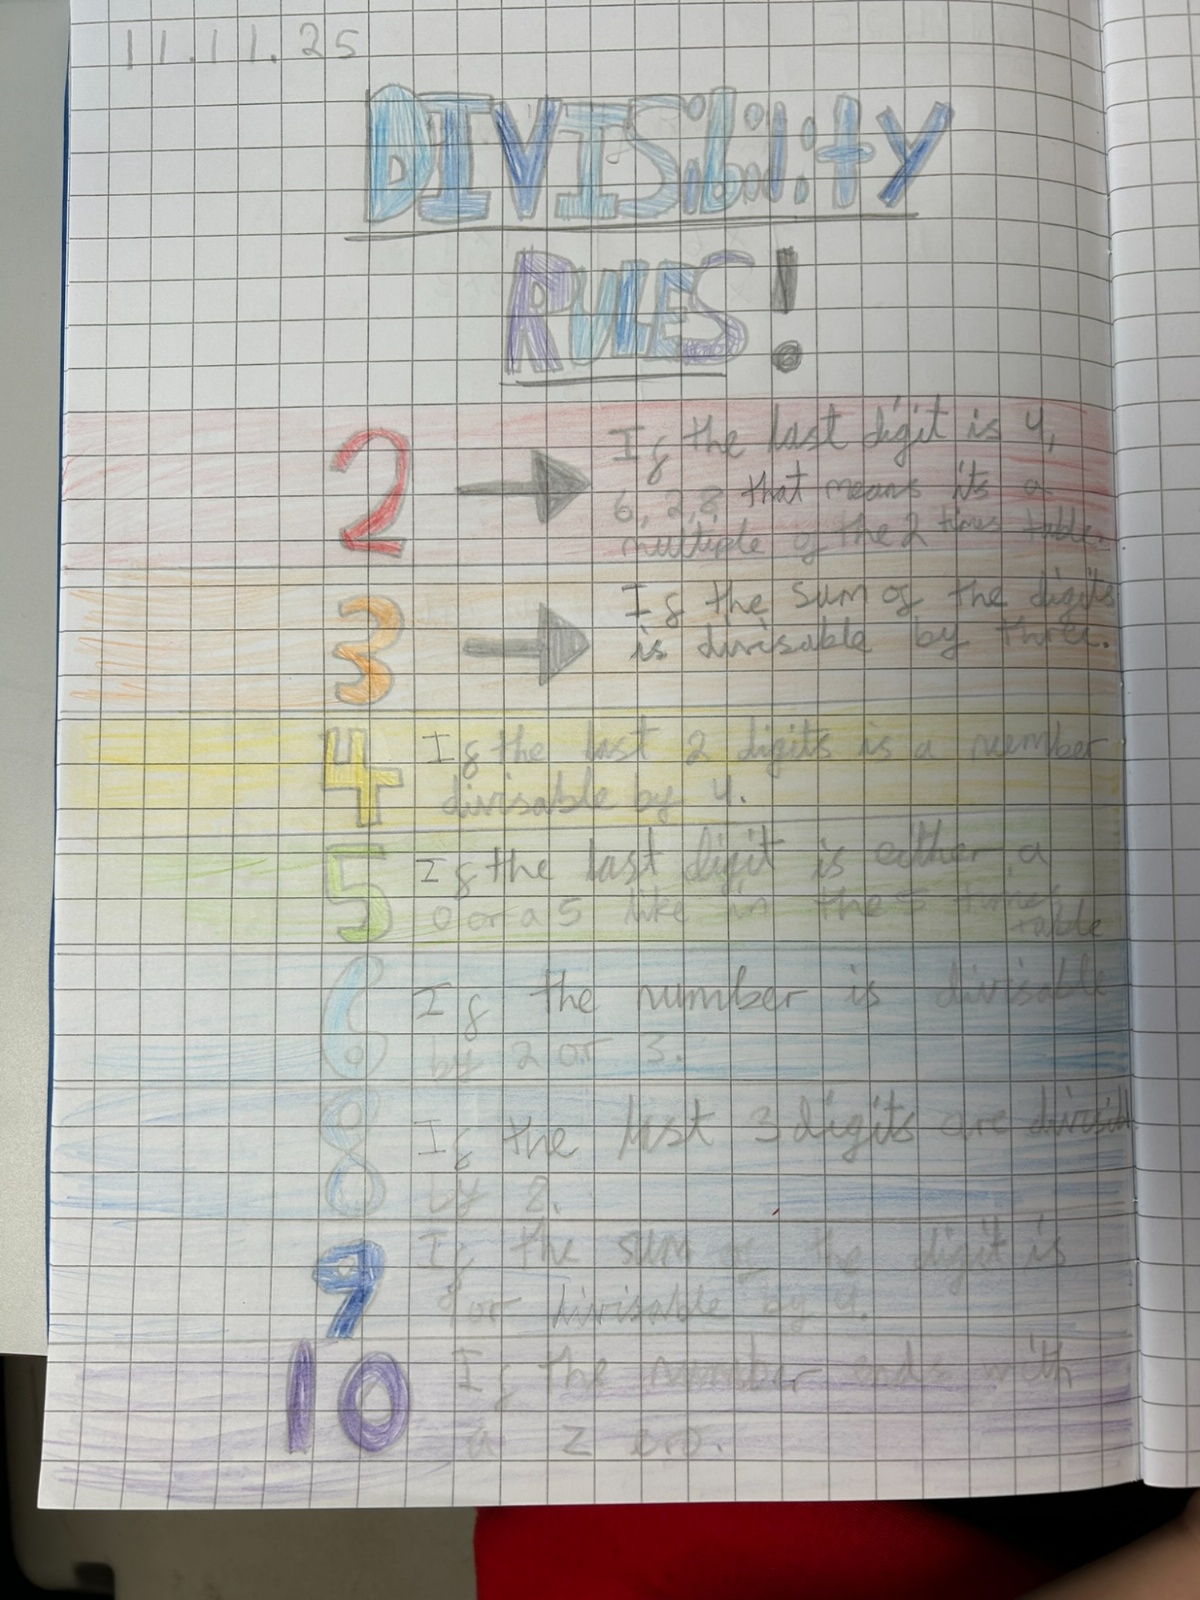 11.11.25
DIVISibility
RULES!
2 → If the last digit is 4,
6, 2, 8 that means its a
multiple of the 2 times table.
3 → If the sum of the digits
is divisable by three.
4 If the last 2 digits is a number
divisable by 4.
5 If the last digit is either a
0 or a 5 like in the 5 times
table
6 If the number is divisable
by 2 or 3.
8 If the last 3 digits are divisibl
by 8.
9 If the sum of the digit is
9 or divisable by 9.
10 If the number ends with
a zero.